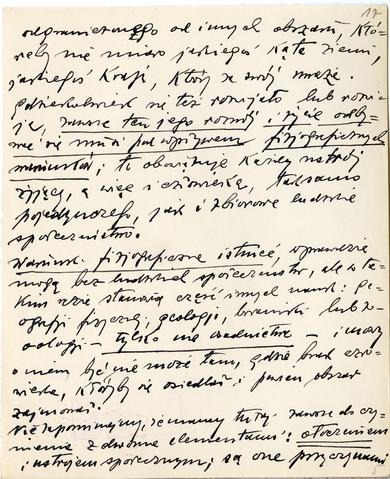 17
odgraniczonego od innych obszaru, któ-
reby nie miało jakiegoś kąta ziemi,
jakiegoś kraju, który za swój uważa.
Gdziekolwiek się też rozwijało lub rozwi-
ja, zawsze ten jego rozwój i życie odby-
wać się musi pod wpływem fizjograficznych
warunków; to obowiązuje każdy ustrój
żyjący, a więc i człowieka, tak samo
pojedynczego, jak i zbiorowe ludzkie
społeczeństwo.
Warunki fizjograficzne istnieć, wprawdzie
mogą bez ludzkich społeczeństw, ale w ta-
kim razie stanowią część innych nauk: ge-
ografji fizycznej, geologji, botaniki lub zo-
ologji – tylko nie osadnictwa – i mowy
o niem być nie może tam, gdzie brak czło-
wieka, któryby się osiedlał i pewien obszar
zajmował.
Nie zapominajmy, że mamy tutaj zawsze do czy-
nienia z dwoma elementami: otoczeniem
i ustrojem społecznym; są one przyczynami